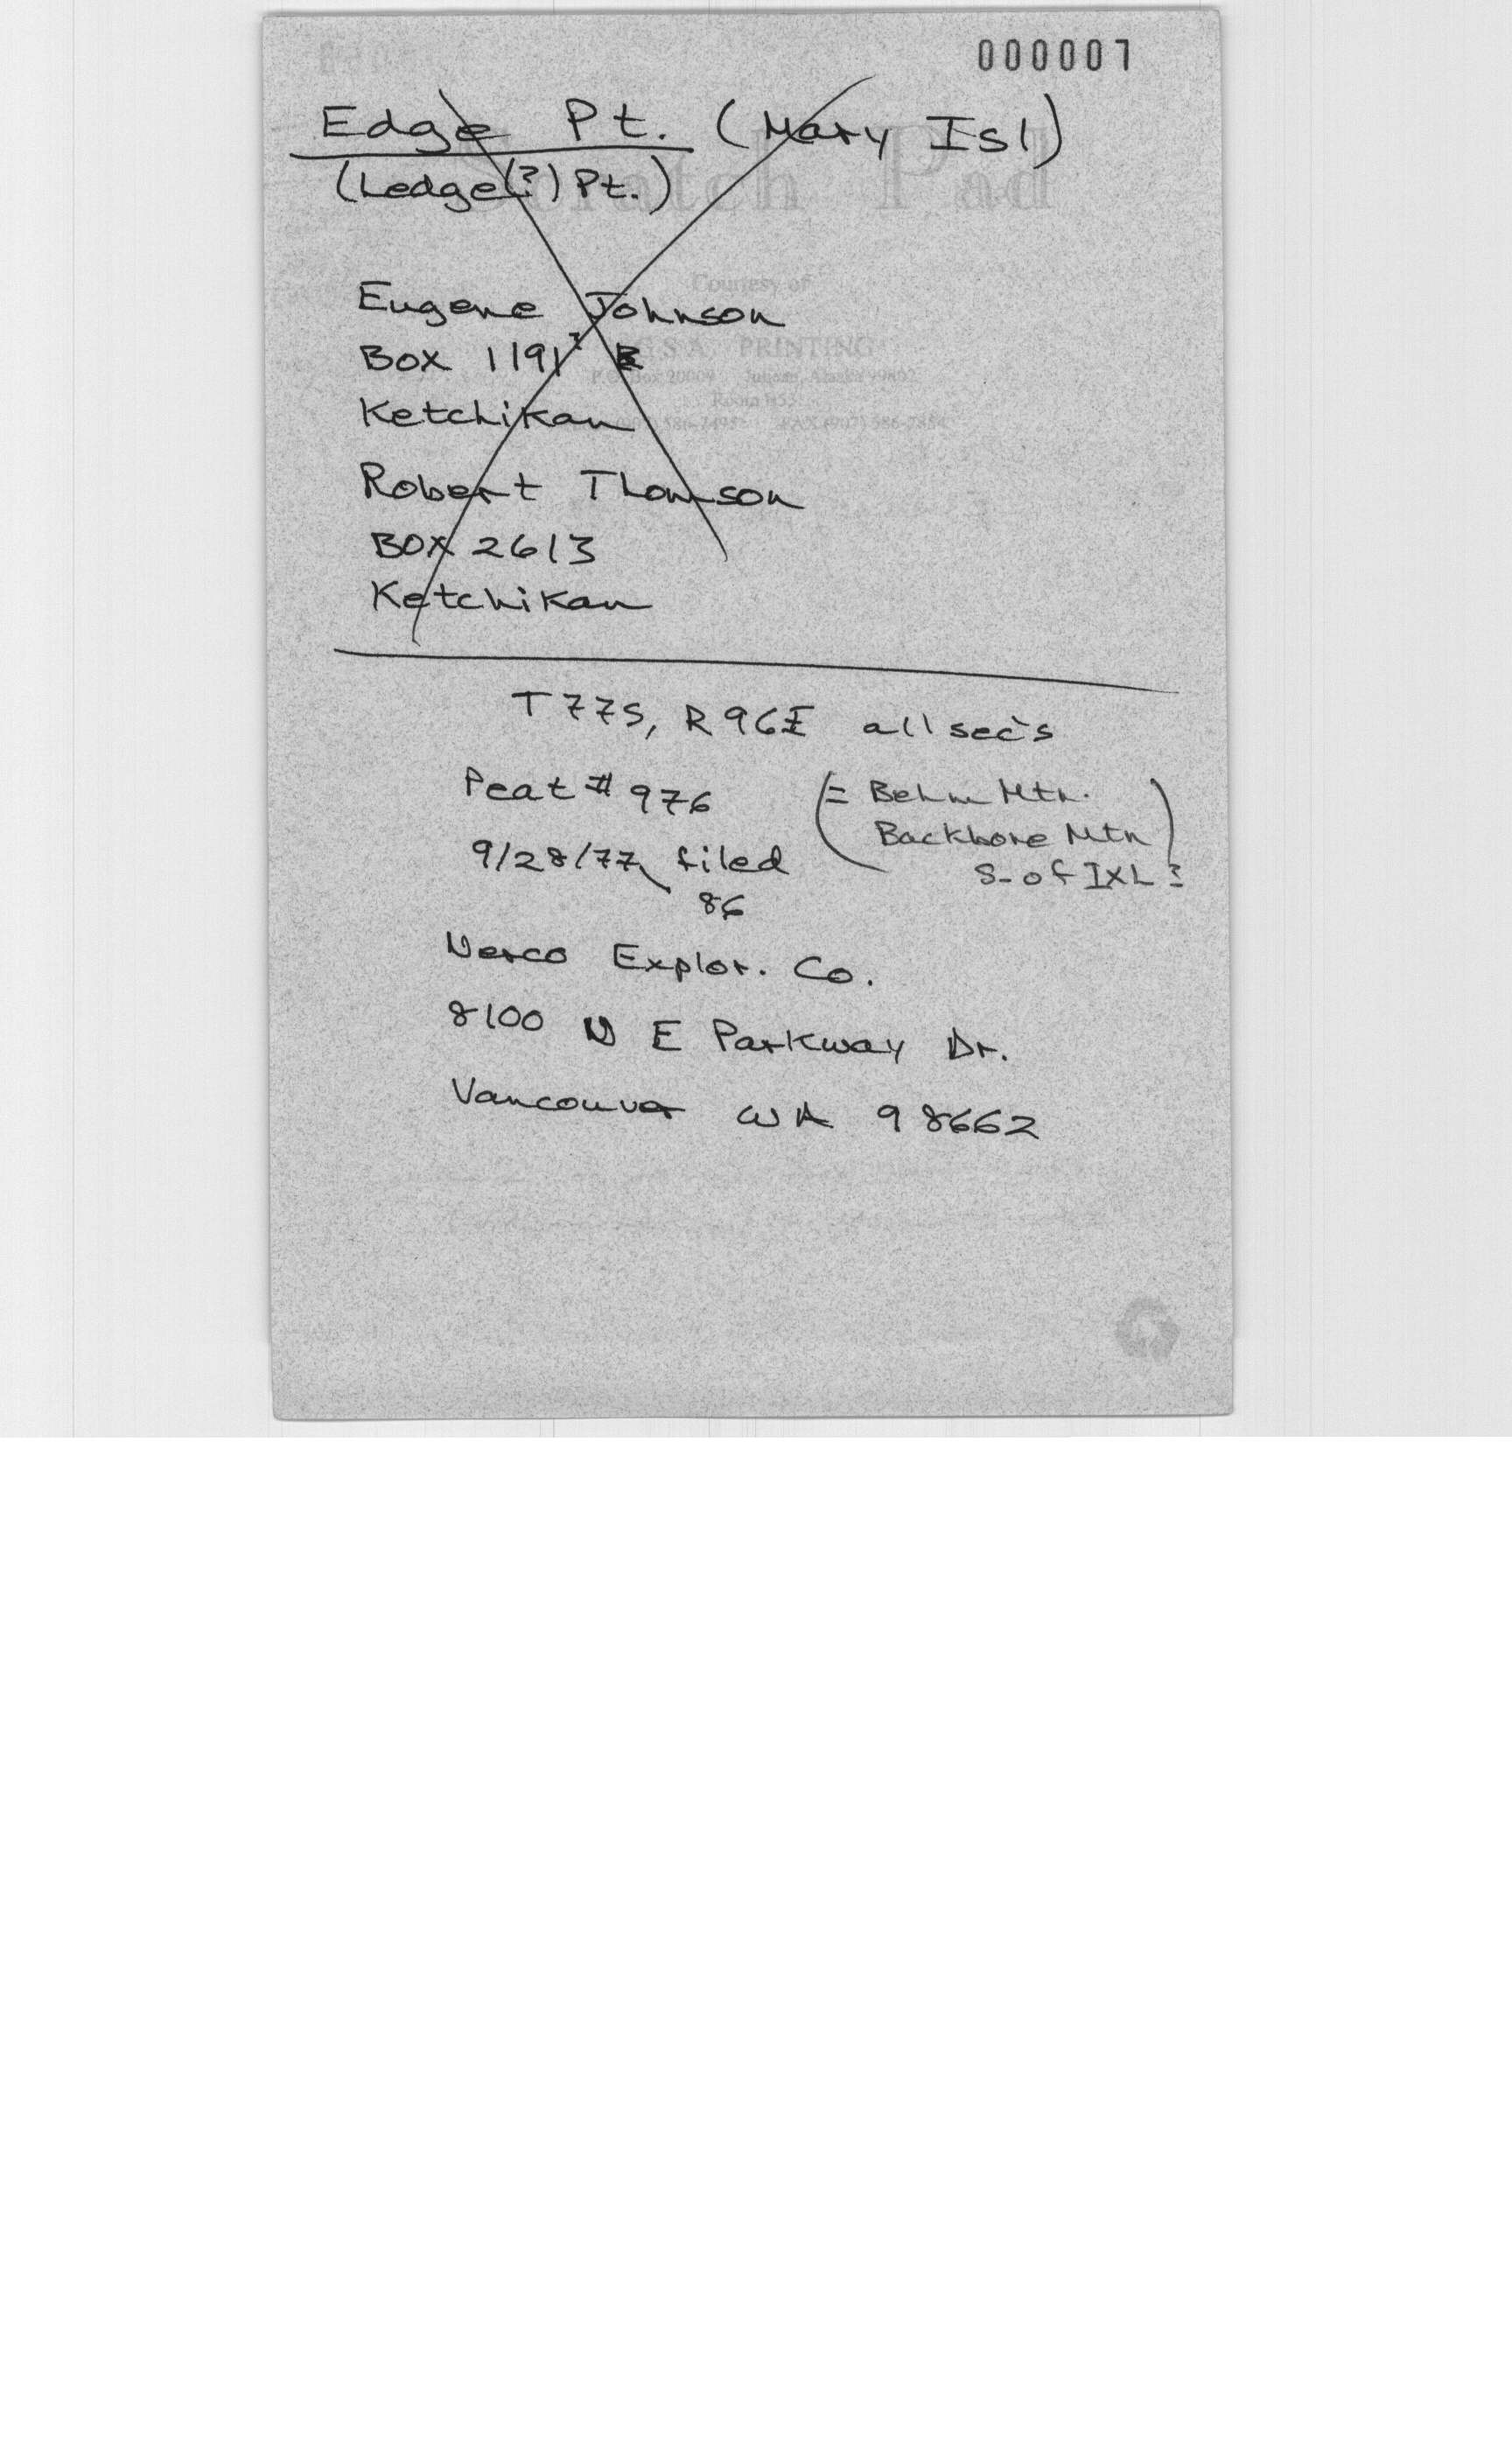 000007
Edge Pt. (Mary Isl)
(Ledge(?) Pt.)
Scratch Pad
Courtesy of
Eugene Johnson
GSA PRINTING
Box 1191?
Juneau, Alaska 99802
Ketchikan
Robert Thomson
Box 2613
Ketchikan
T77S, R96E all sec's
Peat # 976
(= Behm Mtn.
Backbone Mtn)
S. of IXL?
9/28/77 filed
86
Nerco Explor. Co.
8100 N E Parkway Dr.
Vancouver WA 98662